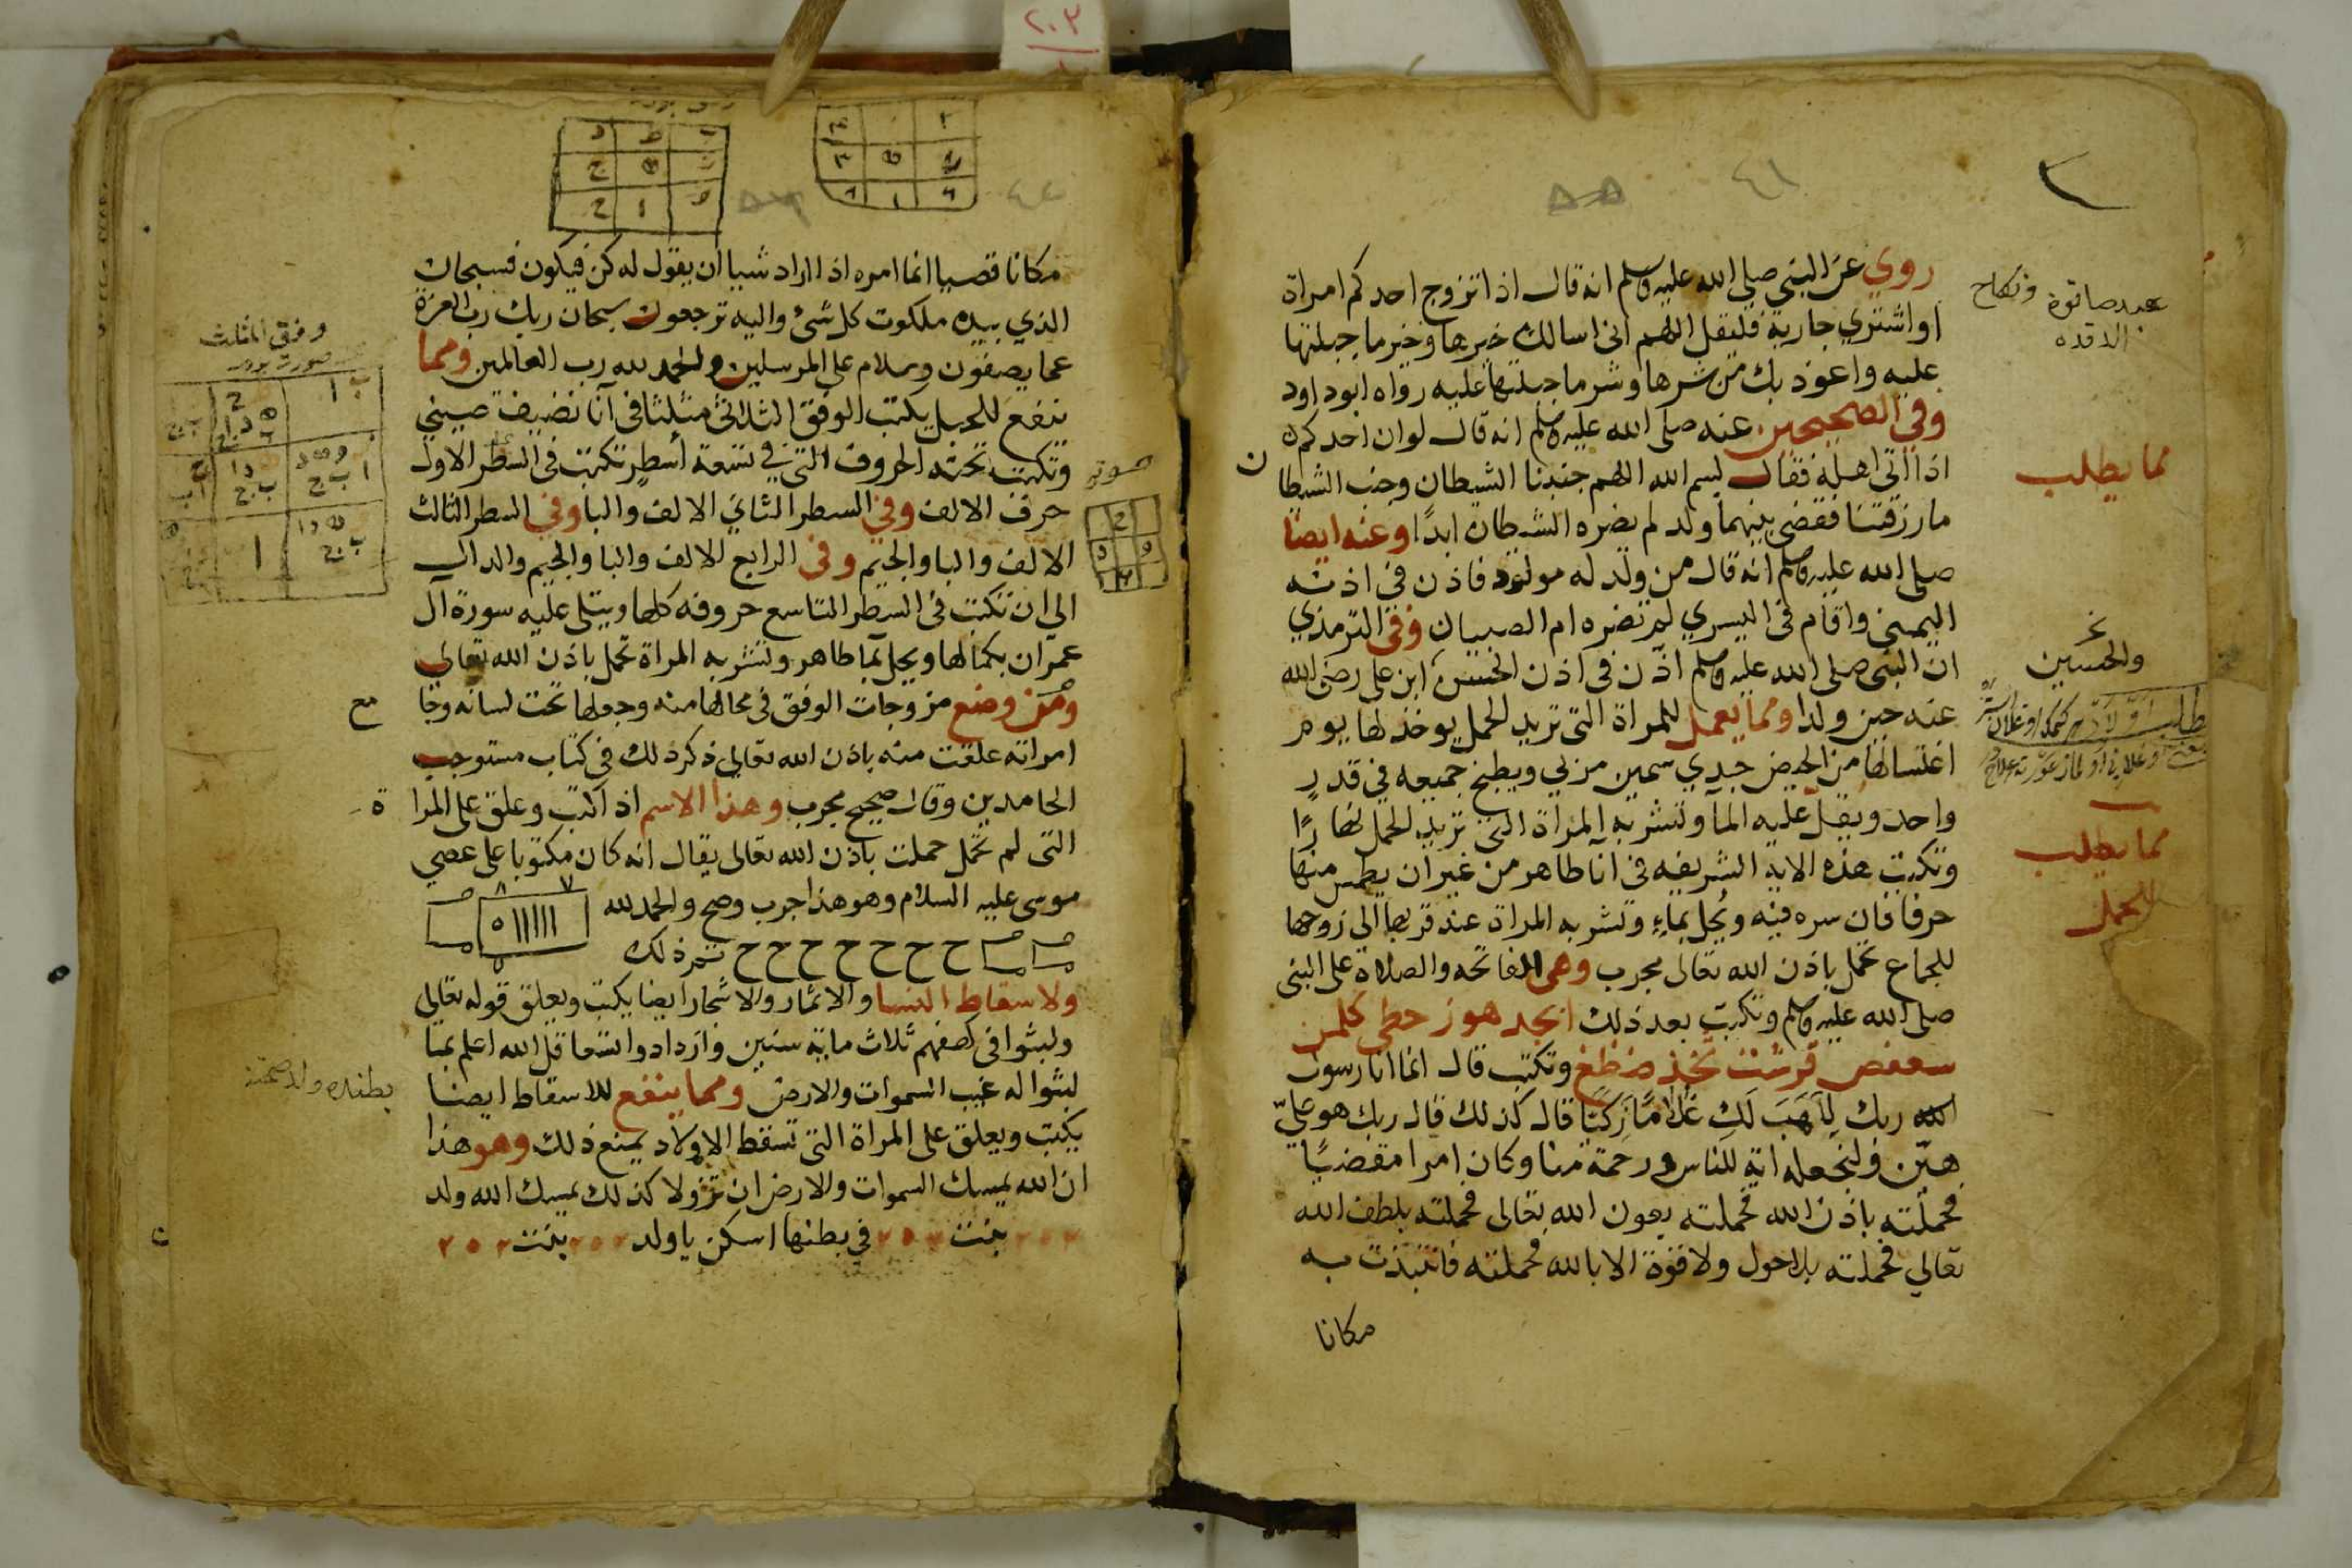 روي عن النبي صلى الله عليه وسلم انه قال اذا تزوج احدكم امراة
او اشتري جارية فليقل اللهم اني اسالك خيرها وخير ما جبلتها
عليه واعوذ بك من شرها وشر ما جبلتها عليه رواه ابو داود
وفي الصحيحين عنه صلى الله عليه وسلم انه قال لو ان احدكم
اذا اتى اهله فقال بسم الله اللهم جنبنا الشيطان وجنب الشيطان
ما رزقتنا فقضي بينهما ولد لم يضره الشيطان ابدًا وعنه ايضا
صلى الله عليه وسلم انه قال من ولد له مولود فاذن في اذنه
اليمنى واقام في اليسري لم تضره ام الصبيان وفي الترمذي
ان النبي صلى الله عليه وسلم اذن في اذن الحسن ابن على رضي الله
عنه حين ولد ومما يعمل للمراة التي تريد الحمل يوخذ لها يوم
اغتسالها من الحيض جدي سمين مزبي ويطبخ جميعه في قدر
واحد ويقل عليه الما وتشربه المراة التي تريد الحمل نهارًا
وتكتب هذه الاية الشريفه في انا طاهر من غير ان يطمس منها
حرفا فان سره فيه ويحل بماء وتشربه المراة عند قربها الى زوجها
للجماع تحمل باذن الله تعالى مجرب وهي الفاتحه والصلاة على النبي
صلى الله عليه وسلم وتكتب بعد ذلك ابجد هوز حطي كلمن
سعفص قرشت ثخذ ضظغ وتكتب قال انما انا رسول
الله ربك لِاَهَبَ لَكِ غلامًا زكيًا قال كذلك قال ربك هو عليّ
هيّن ولنجعله اية للناس ورحمة منا وكان امرا مقضيًا
فحملته باذن الله فحملته بعون الله تعالى فحملته بلطف الله
تعالي فحملته بلا حول ولا قوة الا بالله فحملته فانتبذت به
مكانا
٤١
والحسين
مما يطلب
مما يطلب
للحمل
٢٠٣
مكانا قصيا انما امره اذا اراد شيا ان يقول له كن فيكون فسبحان
الذي بيده ملكوت كل شئ واليه ترجعون سبحان ربك رب العزة
عما يصفون وسلام على المرسلين والحمد لله رب العالمين ومما
ينفع للحبل يكتب الوفق الثلاثى مثلثا في آنا نضيف صيني
وتكتب تحته الحروف التي في تسعة أسطر تكتب في السطر الاول
حرف الالف وفي السطر الثاني الالف والبا وفي السطر الثالث
الالف والبا والجيم وفي الرابع الالف والبا والجيم والدال
الى ان تكتب في السطر التاسع حروفه كلها ويتلى عليه سورة آل
عمران بكمالها ويحل بما طاهر وتشربه المراة تحمل باذن الله تعالي
ومن وضع مزوجات الوفق في محالها منه وجعلها تحت لسانه وجامع
امراته علقت منه باذن الله تعالى ذكر ذلك في كتاب مستوجب
الحامدين وقال صحيح مجرب وهذا الاسم اذا كتب وعلق على المراة
التي لم تحمل حملت باذن الله تعالى يقال انه كان مكتوبا على عصي
موسى عليه السلام وهو هذا جرب وصح والحمد لله
ح ح ح ح ح ح ح ثم ذلك
ولاسقاط النسا والاثمار والاشجار ايضا يكتب ويعلق قوله تعالى
ولبثوا في كهفهم ثلاث ماية سنين وازدادوا تسعا قل الله اعلم بما
لبثوا له غيب السموات والارض ومما ينفع للاسقاط ايضا
يكتب ويعلق على المراة التي تسقط الاولاد يمنع ذلك وهو هذا
ان الله يمسك السموات والارض ان تزولا كذلك يمسك الله ولد
بنت في بطنها اسكن يا ولد بنت
وفق المثلث